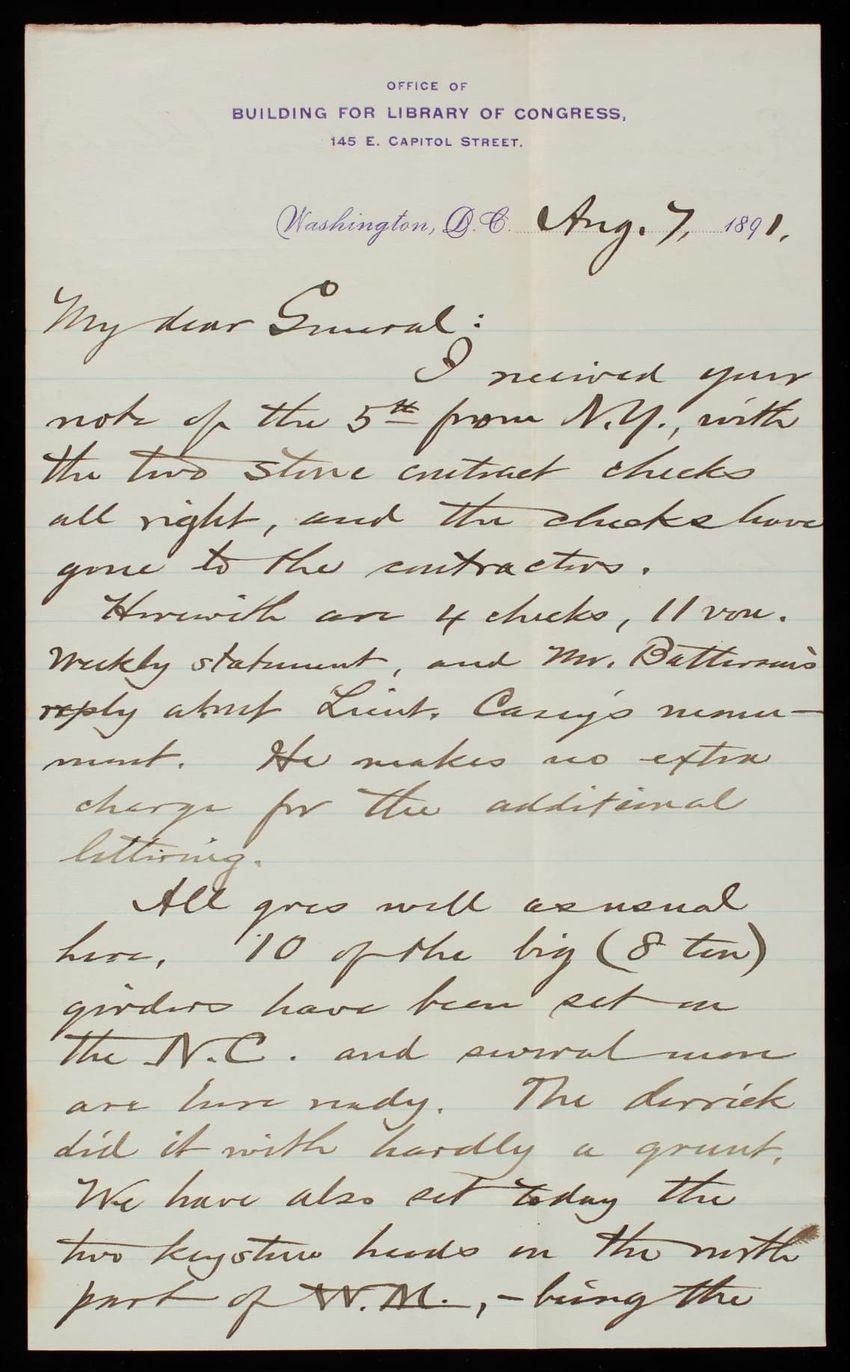 OFFICE OF
BUILDING FOR LIBRARY OF CONGRESS,
145 E. CAPITOL STREET.
Washington, D.C. Aug. 7, 1891.
My dear General:
I received your
note of the 5th from N.Y., with
the two stone contract checks
all right, and the checks have
gone to the contractors.
Herewith are 4 checks, 11 vou.
Weekly statement, and Mr. Batterson's
reply about Lieut. Casey's monu-
ment. He makes no extra
charge for the additional
lettering.
All goes well as usual
here. 10 of the big (8 ton)
girders have been set on
the N.C. and several more
are here ready. The derrick
did it with hardly a grunt.
We have also set today the
two keystone heads on the north
part of W.M., - being the